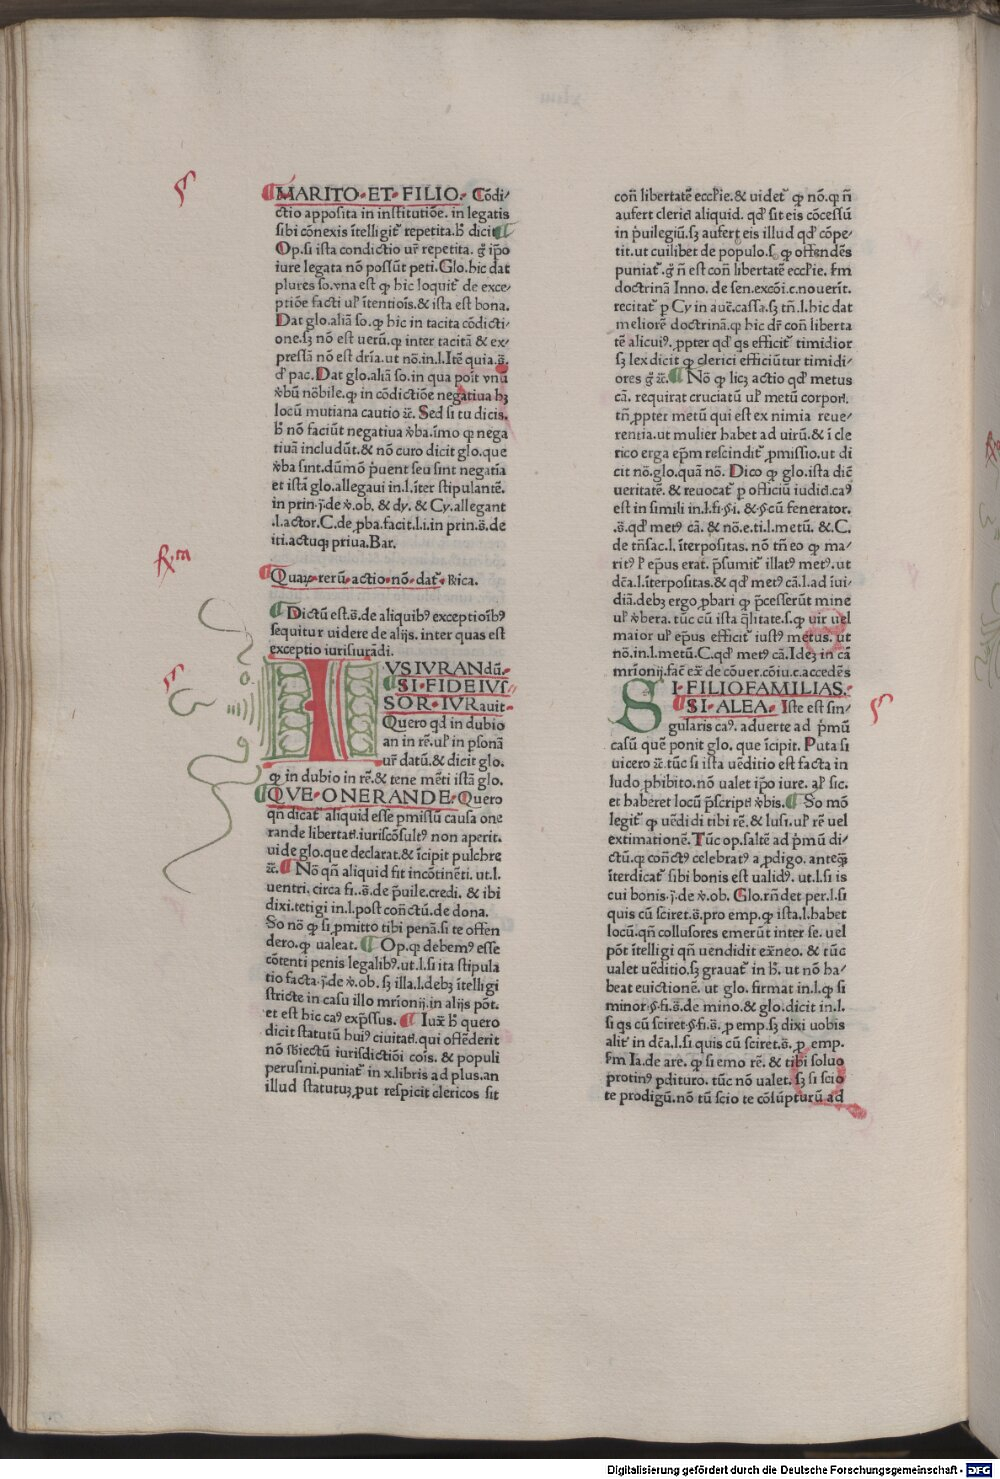 MARITO·ET·FILIO· Cōdi/
ctio apposita in institutiōe. in legatis
sibi cōnexis ītelligit᷑ repetita. b̄ dicit
Op. si ista condictio ur̄ repetita. g̊ ip̄o
iure legata nō possūt peti. Glo. hic dat
plures so. vna est ꝙ hic loquit᷑ de exce/
ptiōe facti ul̕ ītentiōis. & ista est bona.
Dat glo. aliā so. ꝙ hic in tacita cōdicti/
one. sꝫ nō est uerū. ꝙ inter tacitā & ex/
pressā nō est dr̄ia. ut nō. in. l. Itē quia. s̄.
d̕ pac. Dat glo. aliā so. in qua poīt vnū
v̄bū nōbile. ꝙ in cōdictiōe negatiua hꝫ
locū mutiana cautio ⁊c̄. Sed si tu dicis.
b̄ nō faciūt negatiua v̄ba. īmo ꝙ nega
tiuā includūt. & nō curo dicit glo. que
v̄ba sint. dūmō p̄uent seu sint negatīa
et istā glo. allegaui in. l. īter stipulantē.
in prin. j̄. de v̄. ob. & dy. & Cy. allegant
.l. actor. C. de ꝓba. facit. l. i. in prin. s̄. de
iti. actuqꝫ priua. Bar.
Quaꝝ·rerū·actio·nō·dat᷑· Rica.
Dictū est. s̄. de aliquibꝰ exceptioībꝰ
sequitur uidere de alijs. inter quas est
exceptio iurisiurādi.
IVSIVRANdū·
SI·FIDEIVſ
SOR·IVRauit·
Quero qd̕ in dubio
an in rē. ul̕ in ꝑsonā
ur̄ datū. & dicit glo.
ꝙ in dubio in rē. & tene mēti istā glo.
QVE·ONERANDE· Quero
qn̄ dicat᷑ aliquid esse ꝑmissū causa one
rande libertati. iuriscōsultꝰ non aperit.
uide glo. que declarat. & īcipit pulchre
⁊c̄. Nō qn̄ aliquid fit incōtinēti. ut. l.
uentri. circa fi. s̄. de p̄uile. credi. & ibi
dixi. tetigi in. l. post con̄ctū. de dona.
So nō ꝙ si ꝓmitto tibi penā. si te offen
dero. ꝙ ualeat. Op. ꝙ debemꝰ esse
cōtenti penis legalibꝰ. ut. l. si ita stipula
tio facta. j̄. de v̄. ob. sꝫ illa. l. debꝫ ītelligi
stricte in casu illo mr̄ionij. in alijs pōt.
et est hic caꝰ exp̄ssus. Iux̄ b̄ quero
dicit statutū huiꝰ ciuitati. qui offēderit
nō sbiectū iurisdictiōi cois. & populi
perusini. puniat᷑ in x. libris ad plus. an
illud statutuꝫ ꝓut respicit clericos sit
con̄ libertatē eccl̕ie. & uidet᷑ ꝙ nō. ꝙ n̄
aufert clerici aliquid. qd̕ sit eis cōcessū
in p̄uilegiū. sꝫ aufert eis illud qd̕ cōpe/
tit. ut cuilibet de populo. s. ꝙ offendēs
puniat᷑. g̊ n̄ est con̄ libertatē eccl̕ie. fm̄
doctrinā Inno. de sen. excōi. c. nouerīt.
recitat᷑ ꝑ Cy in auc̄. cassa. sꝫ tn̄. l. hic dat
meliorē doctrinā. ꝙ hic dr̄ con̄ liberta
tē alicuiꝰ. ꝓpter qd̕ qs efficit᷑ timidior
sꝫ lex dicit ꝙ clerici efficiūtur timidi/
ores g̊ ⁊c̄. Nō ꝙ licꝫ actio qd̕ metus
cā. requirat cruciatū ul̕ metū corporı.
tn̄ ꝓpter metū qui est ex nimia reue/
rentia. ut mulier habet ad uirū. & ī cle
rico erga ep̄m rescindit᷑ ꝓmissio. ut di
cit nō. glo. quā nō. Dico ꝙ glo. ista dic̄
ueritatē. & reuocat᷑ ꝑ officiū iudici. caꝰ
est in simili in. l. fi. §. i. & §. cū fenerator.
.s̄. qd̕ metꝰ cā. & nō. e. ti. l. metū. &. C.
de trn̄sac. l. īterpositas. nō tn̄ eo ꝙ ma/
ritꝰ l̕ ep̄us erat. p̄sumit᷑ illatꝰ metꝰ. ut
dc̄a. l. īterpositas. & qd̕ metꝰ cā. l. ad īui/
diā. debꝫ ergo ꝓbari ꝙ p̄cesserūt mine
ul̕ v̄bera. tūc cū ista q̄litate. s. ꝙ uir uel
maior ul̕ ep̄us efficit᷑ iustꝰ metus. ut
nō. in. l. metū. C. qd̕ metꝰ cā. Ideꝫ in cā
mr̄ionij. fac̄ ex̄ de cōuer. cōiu. c. accedēs
SI·FILIOFAMILIAS.
SI·ALEA· Iste est sin/
gularis caꝰ. aduerte ad p̄mū
casū quē ponit glo. que īcipit. Puta si
uicero ⁊c̄. tūc si ista uēditio est facta in
ludo ꝓhibito. nō ualet ip̄o iure. al̕ sic.
et haberet locū p̄scripti v̄bis. So mō
legit᷑ ꝙ uēdidi tibi rē. & lusi. ul̕ rē uel
extimationē. Tūc op. saltē ad p̄mū di/
ctū. ꝙ con̄ctꝰ celebratꝰ a ꝓdigo. anteqꝫ
īterdicat᷑ sibi bonis est ualidꝰ. ut. l. si is
cui bonis. j̄. de v̄. ob. Glo. rn̄det per. l. si
quis cū sciret. s̄. pro emp. ꝙ ista. l. habet
locū. qn̄ collusores emerūt inter se. uel
pōt ītelligi qn̄ uendidit ex̄neo. & tūc
ualet uēditio. sꝫ grauat᷑ in b̄. ut nō ha/
beat euictionē. ut glo. firmat in. l. ꝙ si
minor. §. fi. s̄. de mino. & glo. dicit in. l.
si qs cū sciret. §. fi. s̄. ꝓ emp. sꝫ dixi uobis
alit᷑ in dc̄a. l. si quis cū sciret. s̄. ꝓ emp.
fm̄ Ia. de are. ꝙ si emo rē. & tibi soluo
protinꝰ ꝑdituro. tūc nō ualet. sꝫ si scio
te prodigū. nō tū scio te cōsūpturū ad
Digitalisierung gefördert durch die Deutsche Forschungsgemeinschaft - DFG